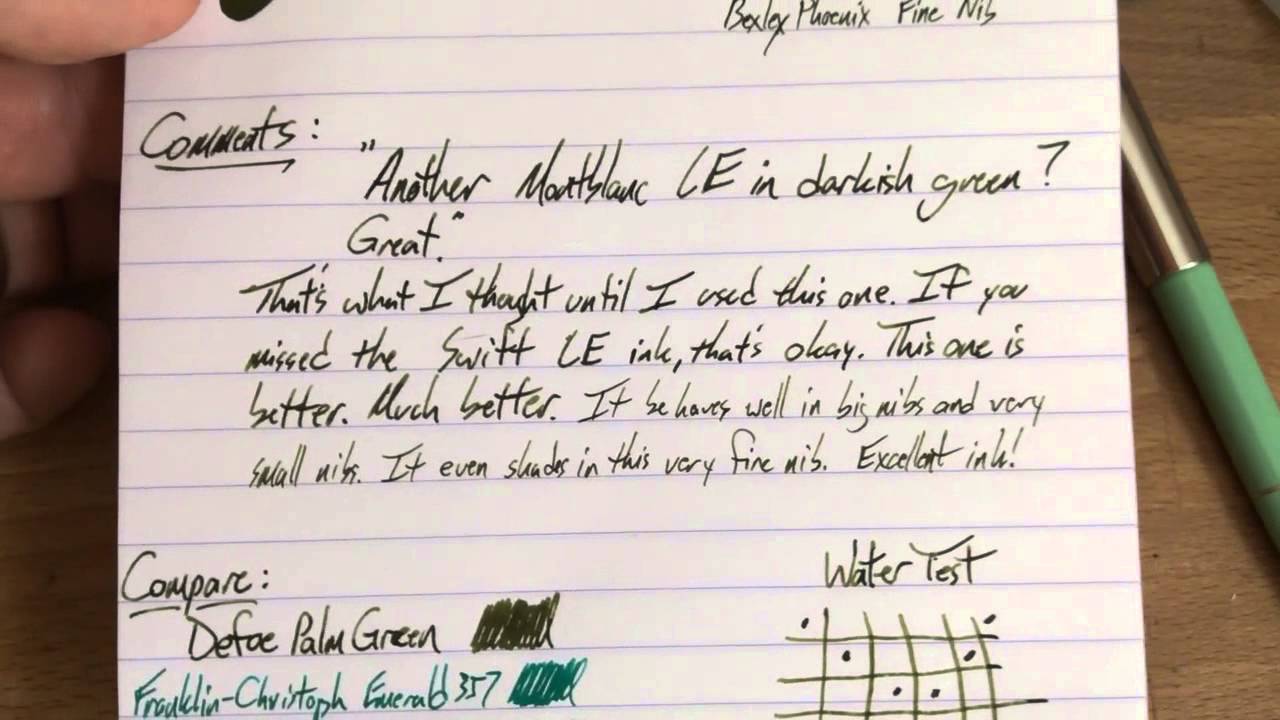 Bexley Phoenix Fine Nib
Comments:
"Another Montblanc LE in darkish green?
Great."
That's what I thought until I used this one. If you
missed the Swift LE ink, that's okay. This one is
better. Much better. It behaves well in big nibs and very
small nibs. It even shades in this very fine nib. Excellent ink!
Compare:
Water Test
Defoe Palm Green
Franklin-Christoph Emerald 357